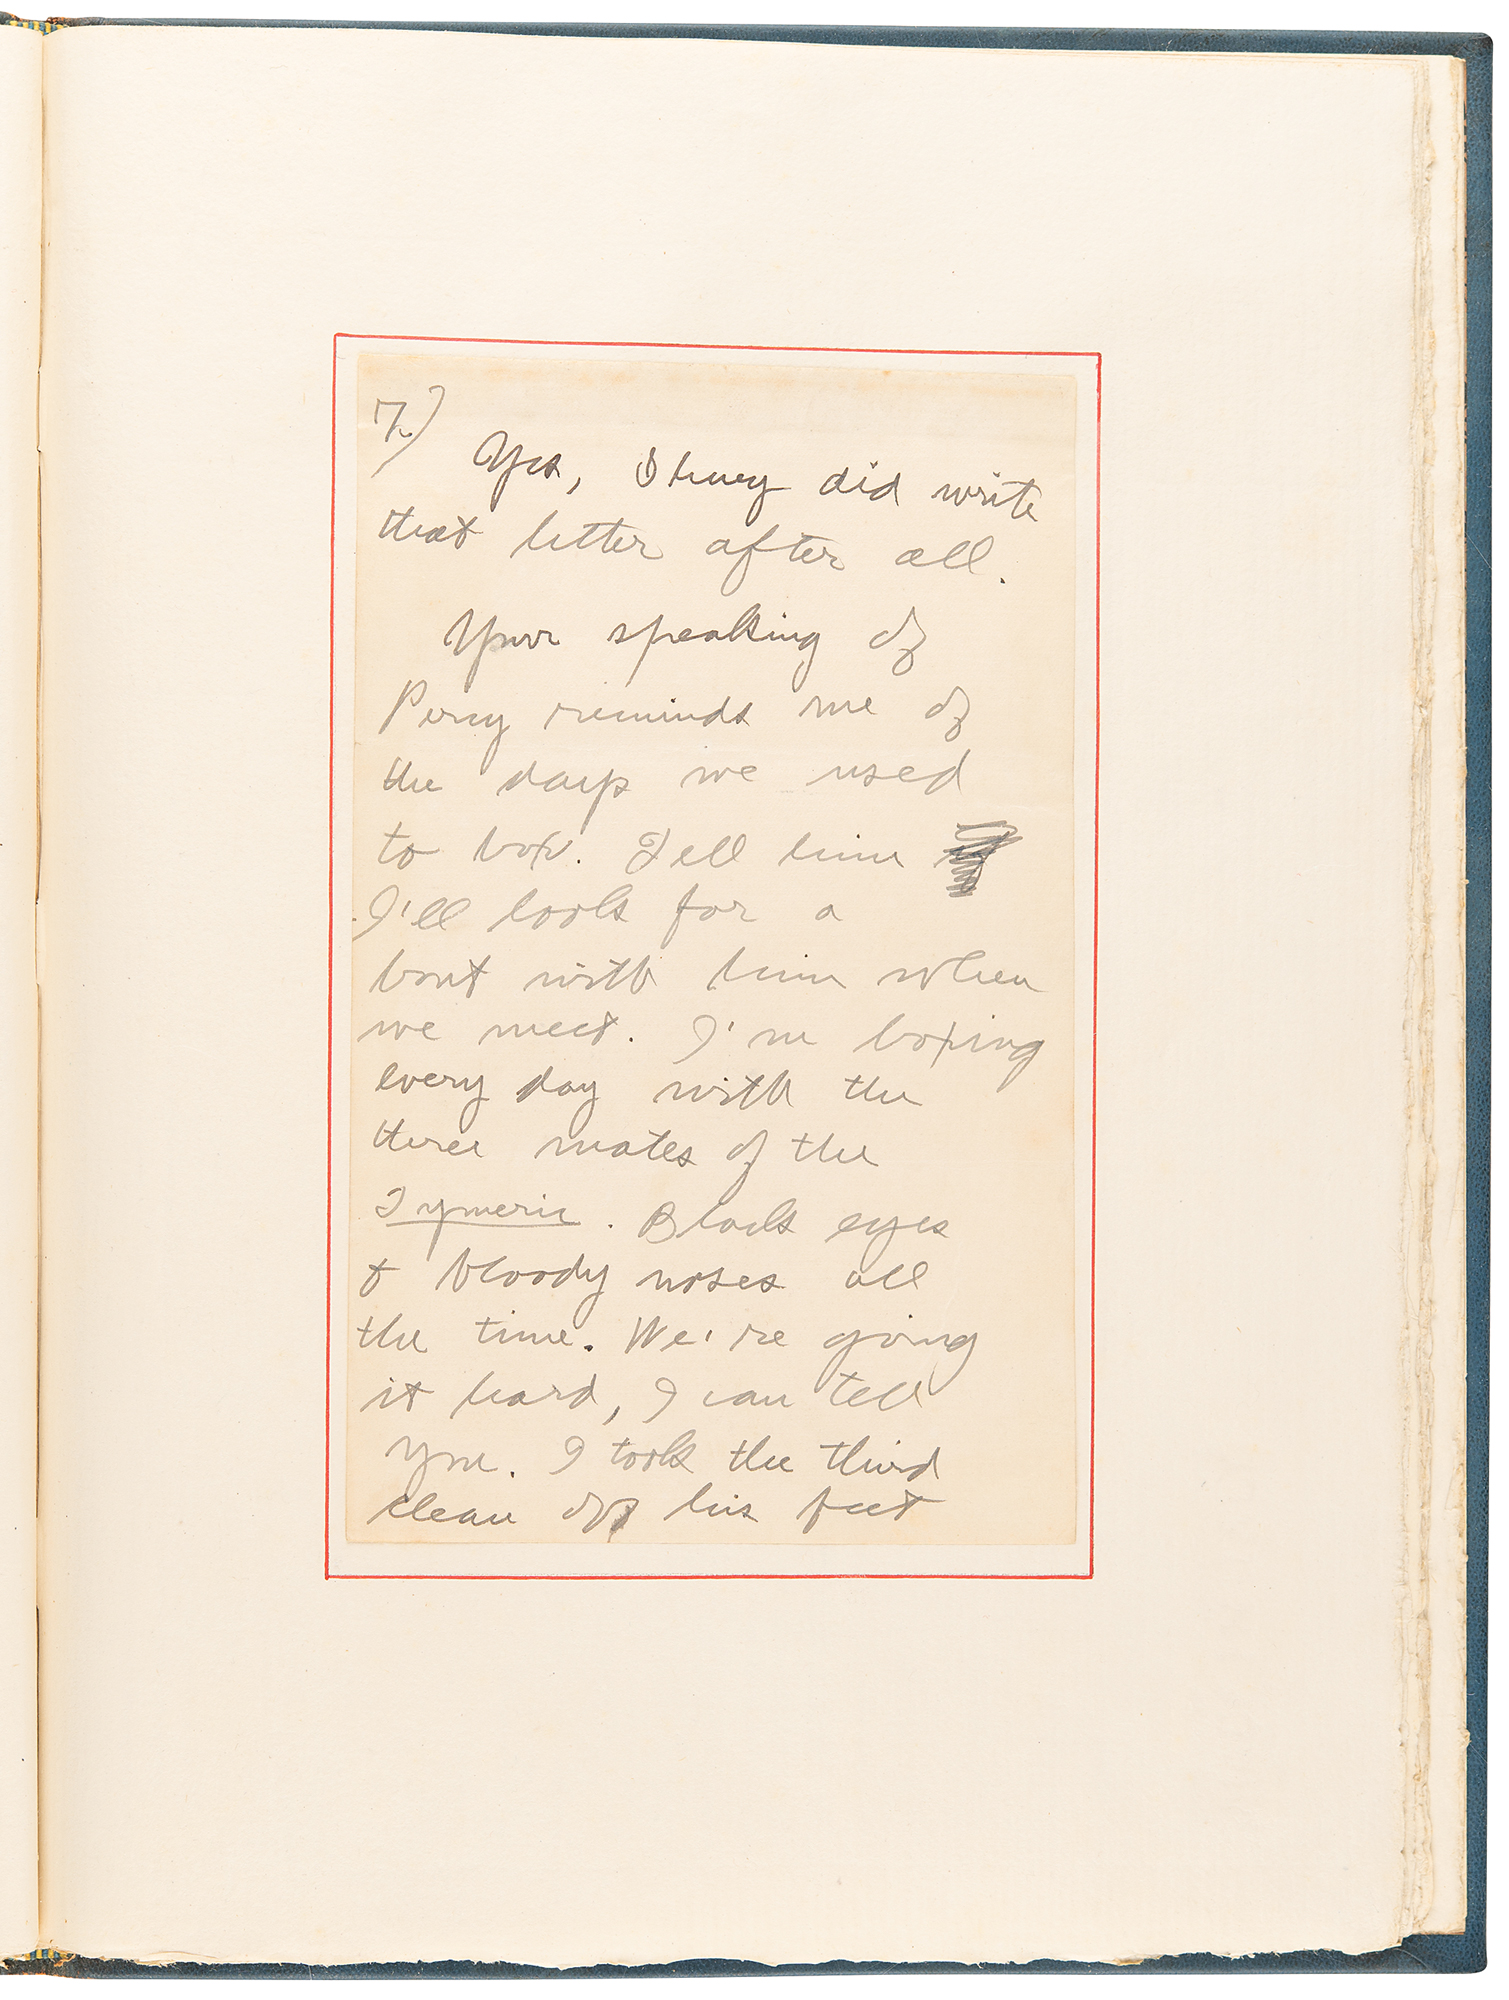 7.)
Yes, Henry did write
that letter after all.
Your speaking of
Percy reminds me of
the days we used
to box. Tell him
I'll look for a
bout with him when
we meet. I'm boxing
every day with the
three mates of the
Tymeric. Black eyes
& bloody noses all
the time. We're going
it hard, I can tell
you. I took the third
clean off his feet